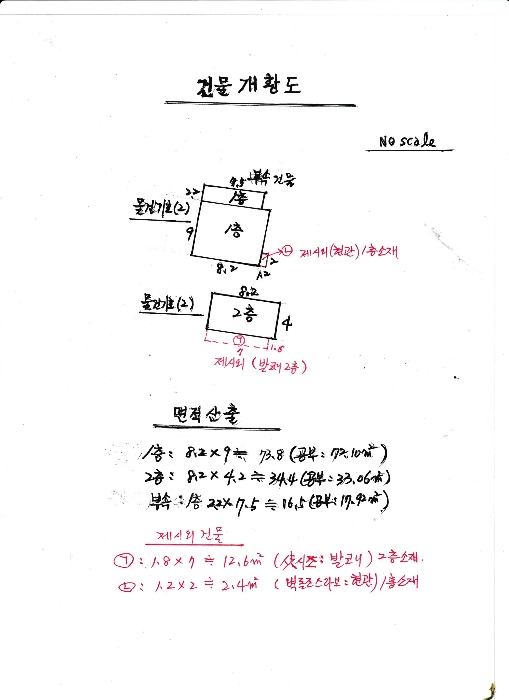 건물개황도
No scale
7.5 부속건물
2.2
1층
물건기호(2)
9
1층
2
ㄴ 제시외(현관)1층소재
8.2
1.2
8.2
물건기호(2)
2층
4
ㄱ
7
1.8
제시외 (발코니 2층)
면적산출
1층: 8.2×9≒ 73.8 (공부: 72.10㎡)
2층: 8.2×4.2≒34.4(공부: 33.06㎡)
부속: 1층 2.2×7.5≒16.5(공부: 17.92㎡)
제시외건물
ㄱ: 1.8×7≒12.6㎡ (샷시조: 발코니) 2층소재.
ㄴ: 1.2×2≒2.4㎡ (벽돌조스라브: 현관)1층소재